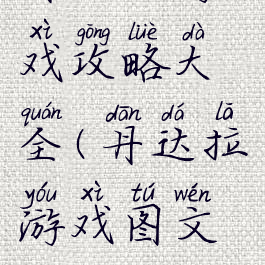 xì gōng lüè dà
戏攻略大
quán dān dá lā
全(丹达拉
yóu xì tú wén
游戏图文